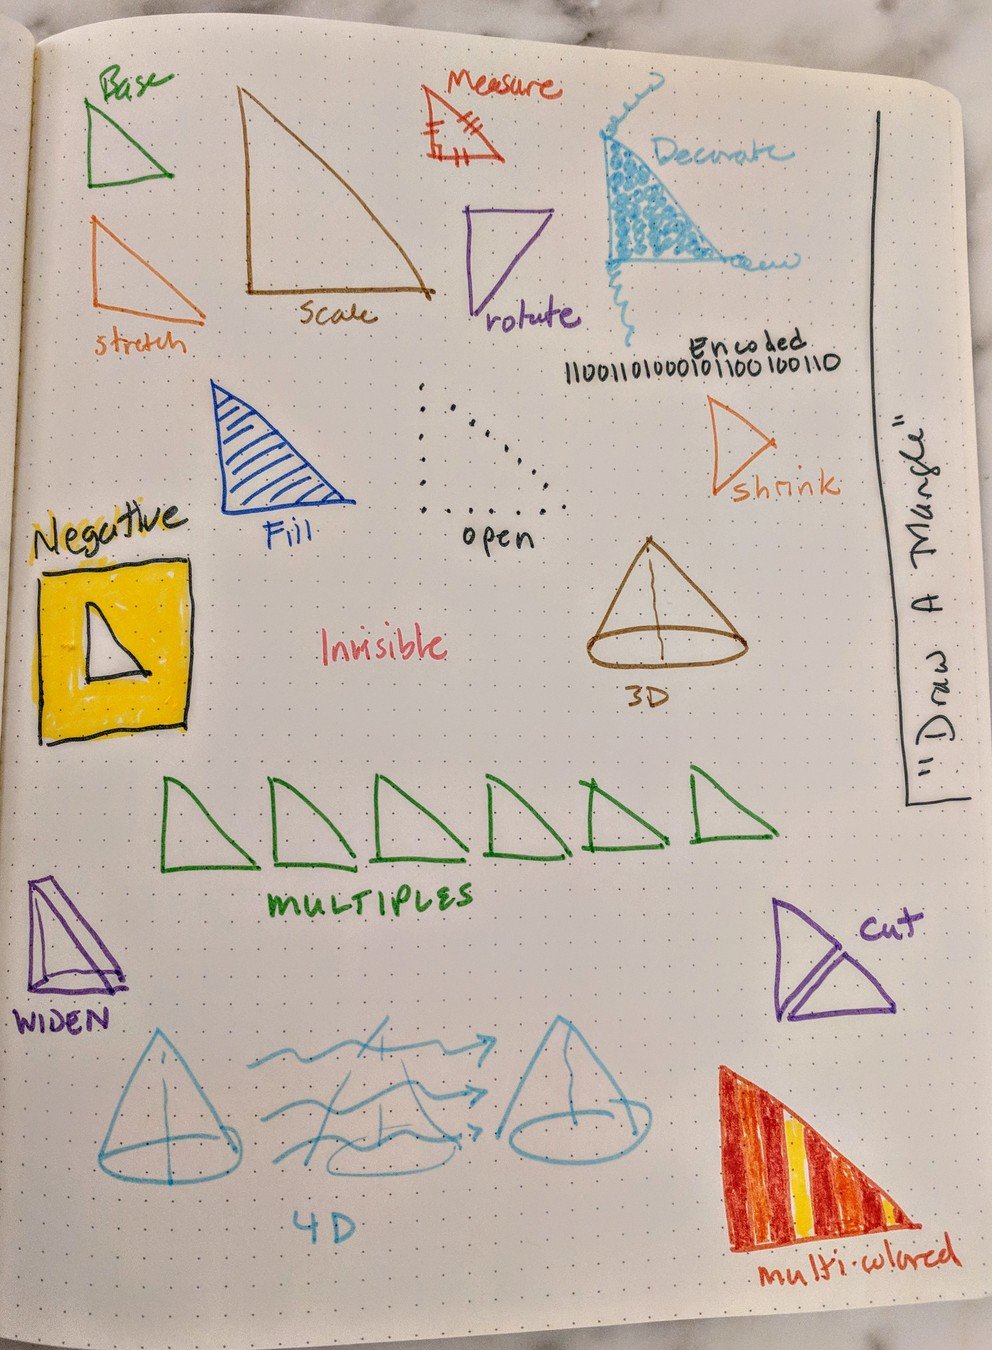 Base
Measure
Decorate
stretch
Scale
rotate
Encoded
11001101000101100100110
Fill
open
shrink
Negative
Invisible
3D
"Draw A Mangle"
MULTIPLES
WIDEN
cut
4D
multi-colored